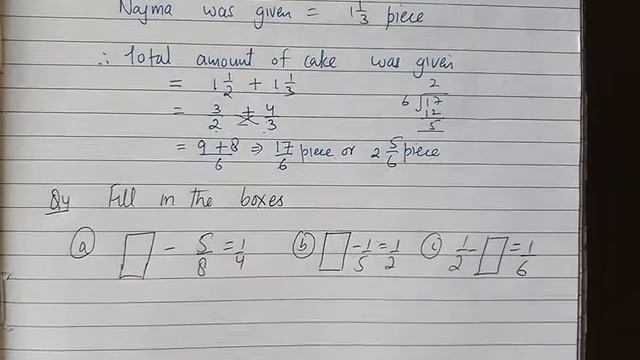 Najma was given = 1 1/3 piece
∴ Total amount of cake was given
= 1 1/2 + 1 1/3
= 3/2 + 4/3
= 9 + 8/6 ⇒ 17/6 piece or 2 5/6 piece
2
6 17
12
5
Q4 Fill in the boxes
(a) □ - 5/8 = 1/4 (b) □ - 1/5 = 1/2 (c) 1/2 - □ = 1/6